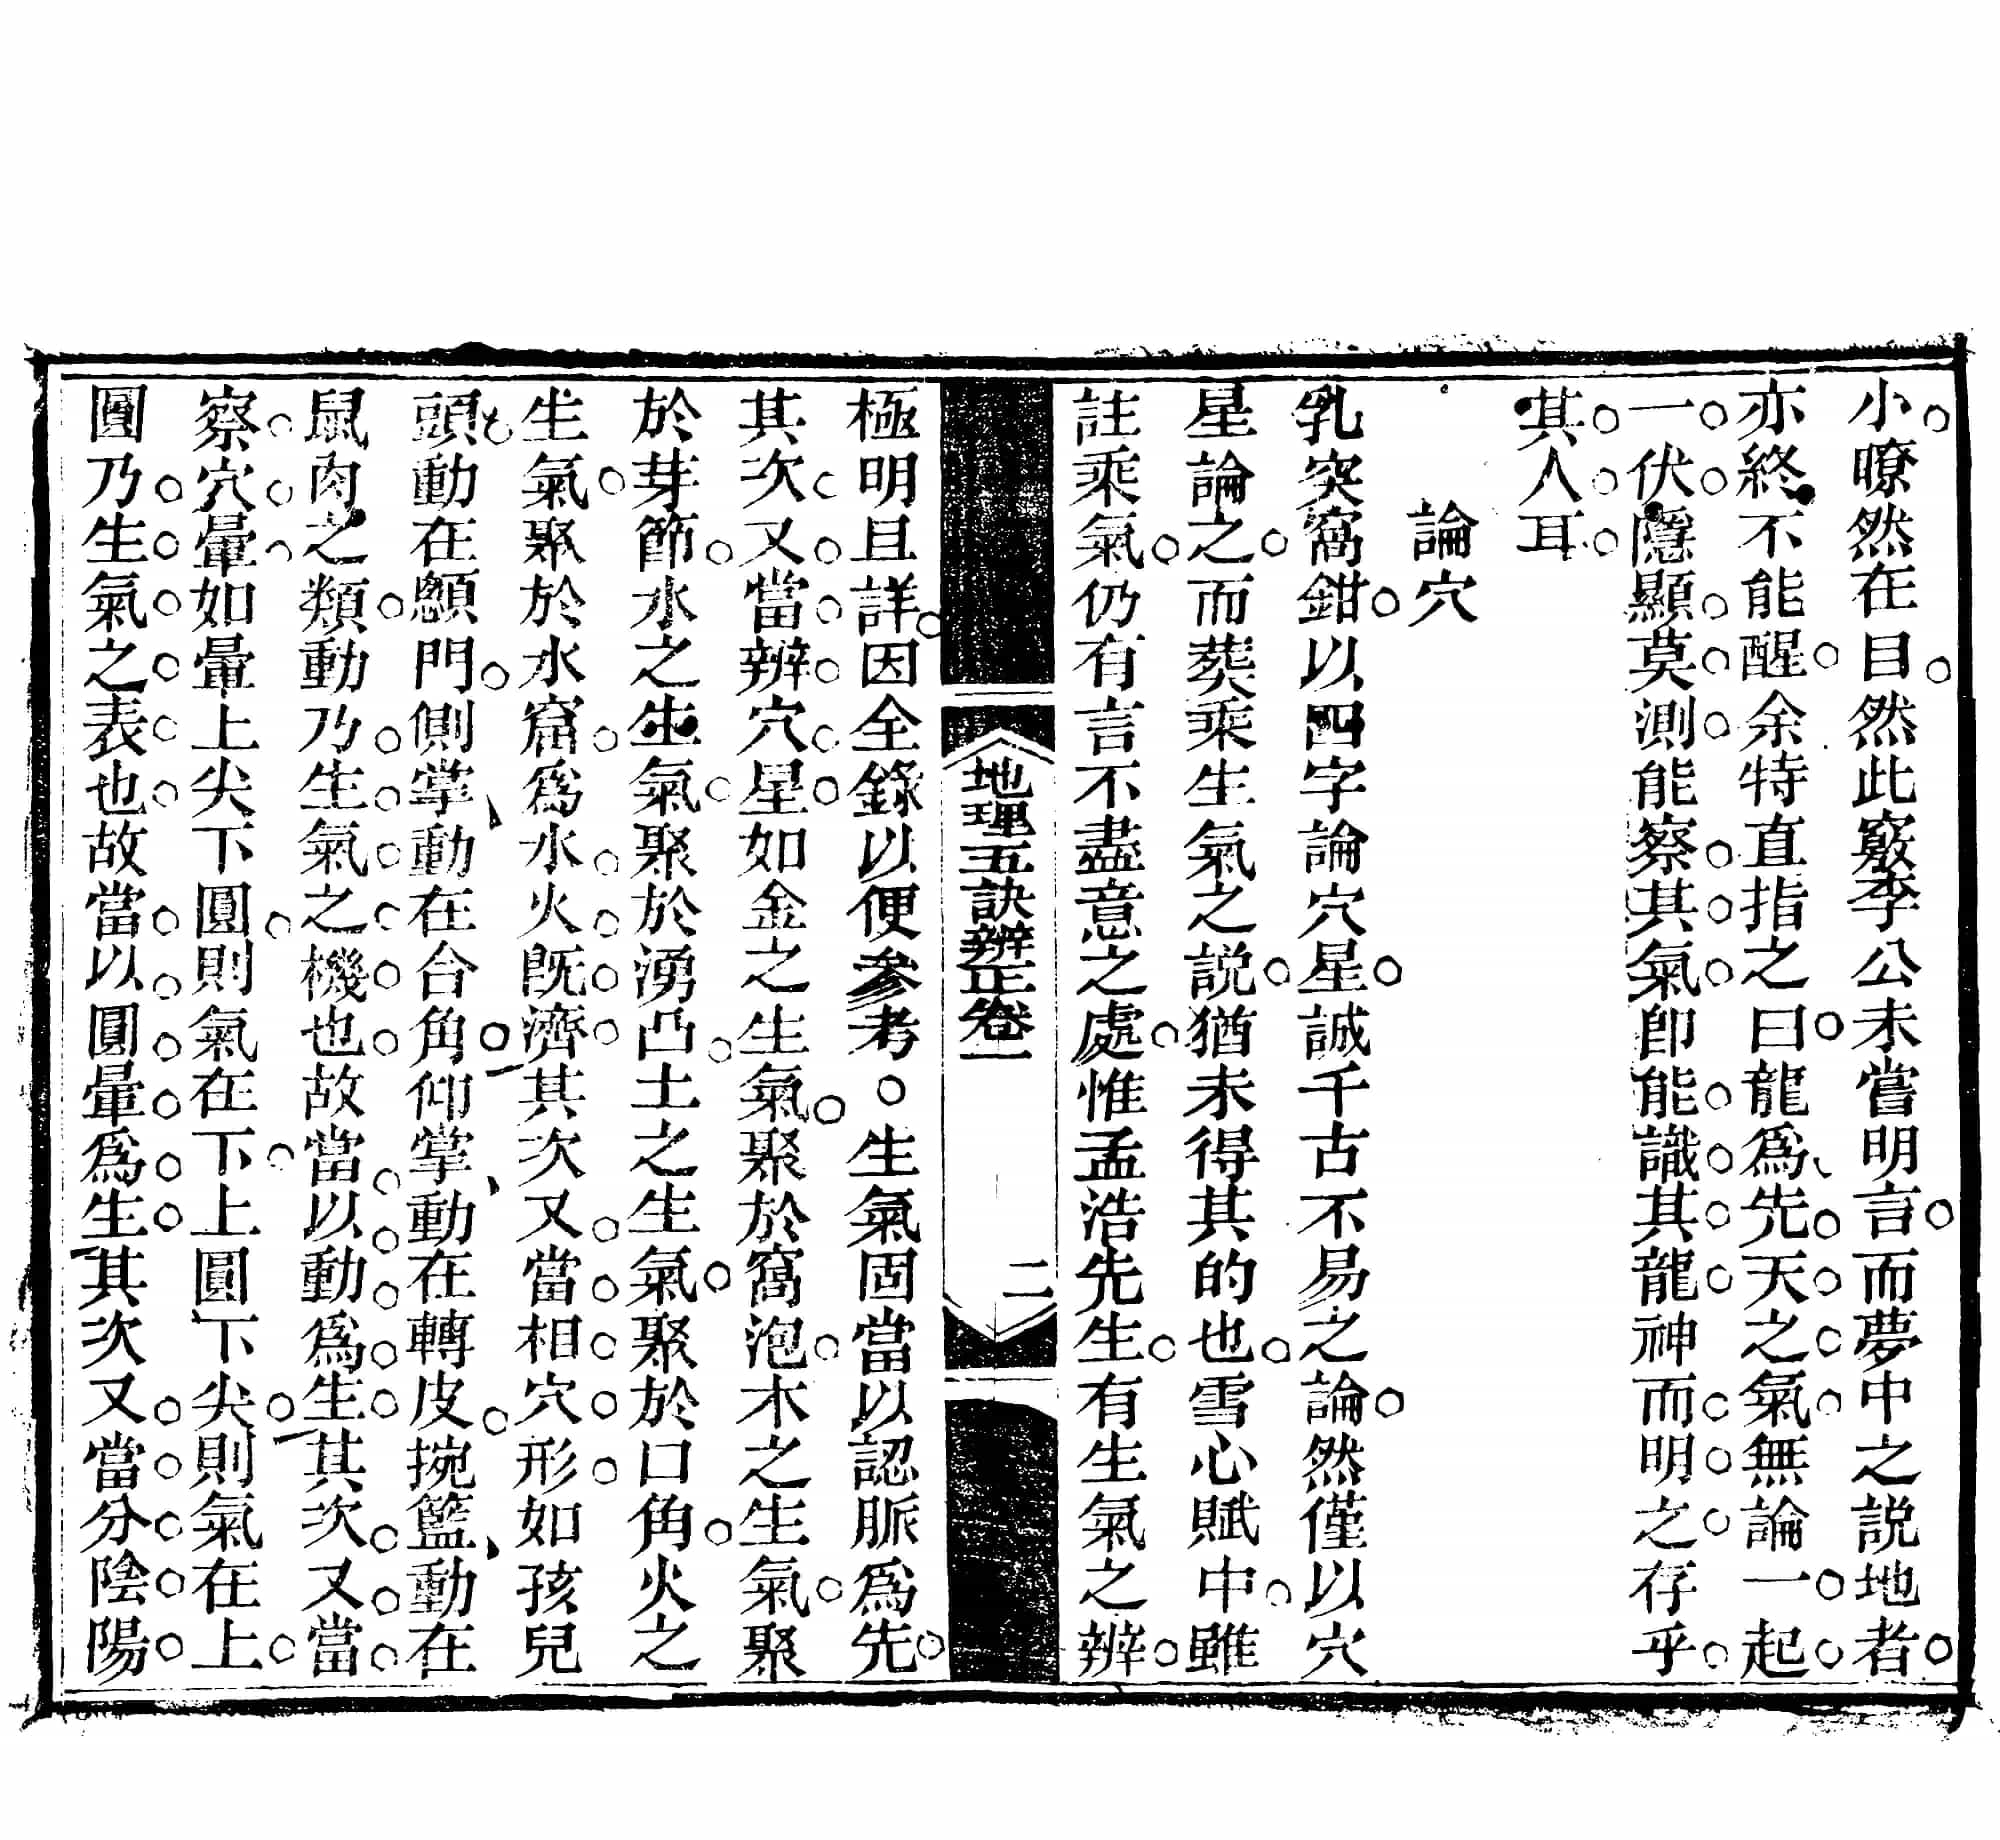 小暸然在目然此竅李公未嘗明言而夢中之説地者
亦終不能醒余特直指之曰龍爲先天之氣無論一起
一伏隱顯莫測能察其氣即能識其龍神而明之存乎
其人耳
論穴
乳突窩鉗以四字論穴星誠千古不易之論然僅以穴
星論之而葬乘生氣之説猶未得其的也雪心賦中雖
註乘氣仍有言不盡意之處惟孟浩先生有生氣之辨
地理五訣辨正卷一
二
極明且詳因全錄以便參考○生氣固當以認脈爲先
其次又當辨穴星如金之生氣聚於窩泡木之生氣聚
於芽節水之生氣聚於湧凸土之生氣聚於口角火之
生氣聚於水窟爲水火既濟其次又當相穴形如孩兒
頭動在顖門側掌動在合角仰掌動在轉皮捥籃動在
鼠肉之類動乃生氣之機也故當以動爲生其次又當
察穴暈如暈上尖下圓則氣在下上圓下尖則氣在上
圓乃生氣之表也故當以圓暈爲生其次又當分陰陽